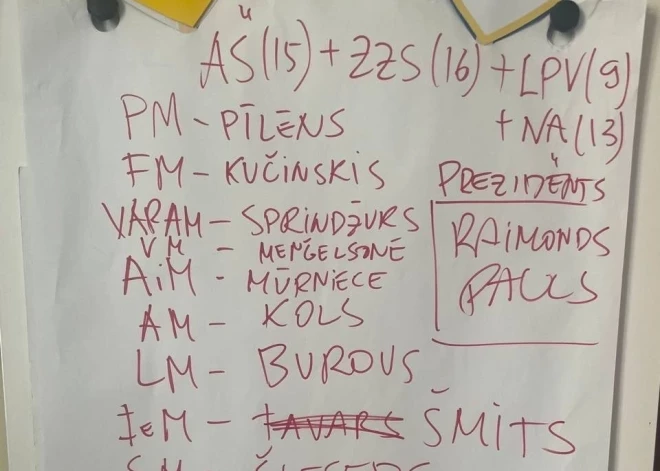 AŠ(15)+ZZS(16)+LPV(9)
+NA(13)
PM-PĪLĒNS
FM-KUČINSKIS
VARAM-SPRINDŽUKS
VM - MEŅĢELSONE
AiM-MŪRNIECE
AM- KOLS
LM- BUROVS
IeM- TAVARS ŠMITS
SM- ŠLESERS
PREZIDENTS
RAIMONDS
PAULS